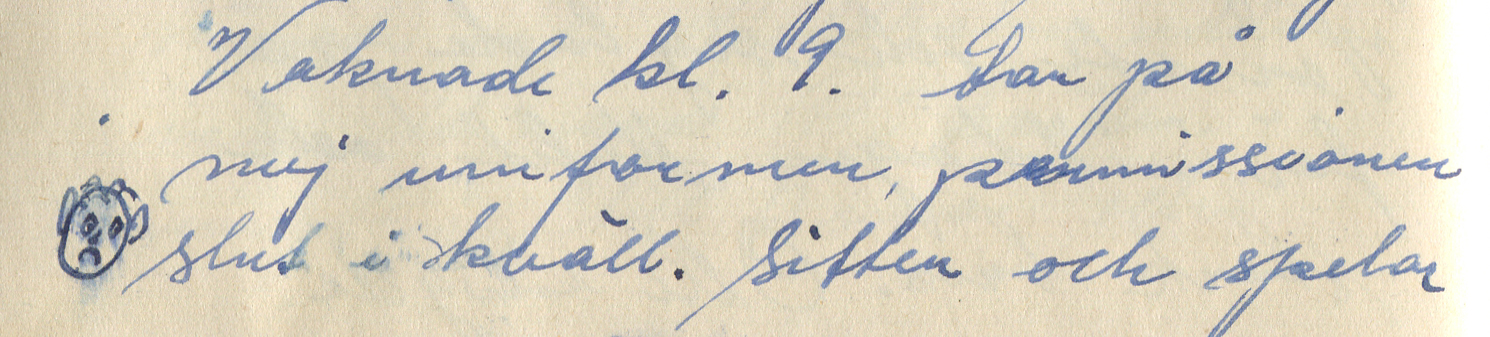 Vaknade kl. 9. Tar på
mej uniformen, permissionen
slut i kväll. Sitter och spelar